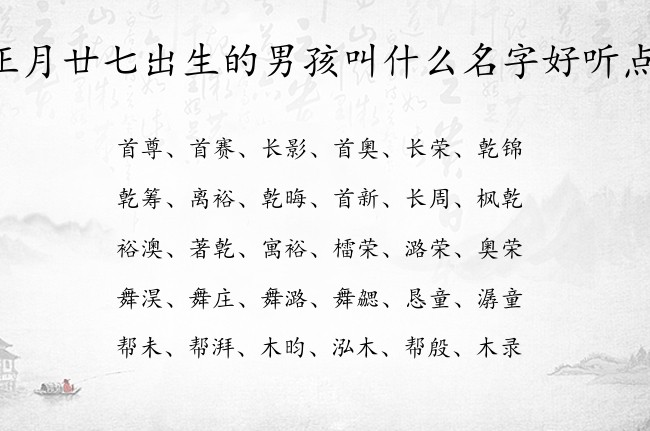 正月廿七出生的男孩叫什么名字好听点
首尊、首赛、长影、首奥、长荣、乾锦
乾筹、离裕、乾晦、首新、长周、枫乾
裕澳、著乾、寓裕、檑荣、潞荣、奥荣
舞淏、舞庄、舞潞、舞勰、恳童、潺童
帮未、帮湃、木昀、泓木、帮殷、木录